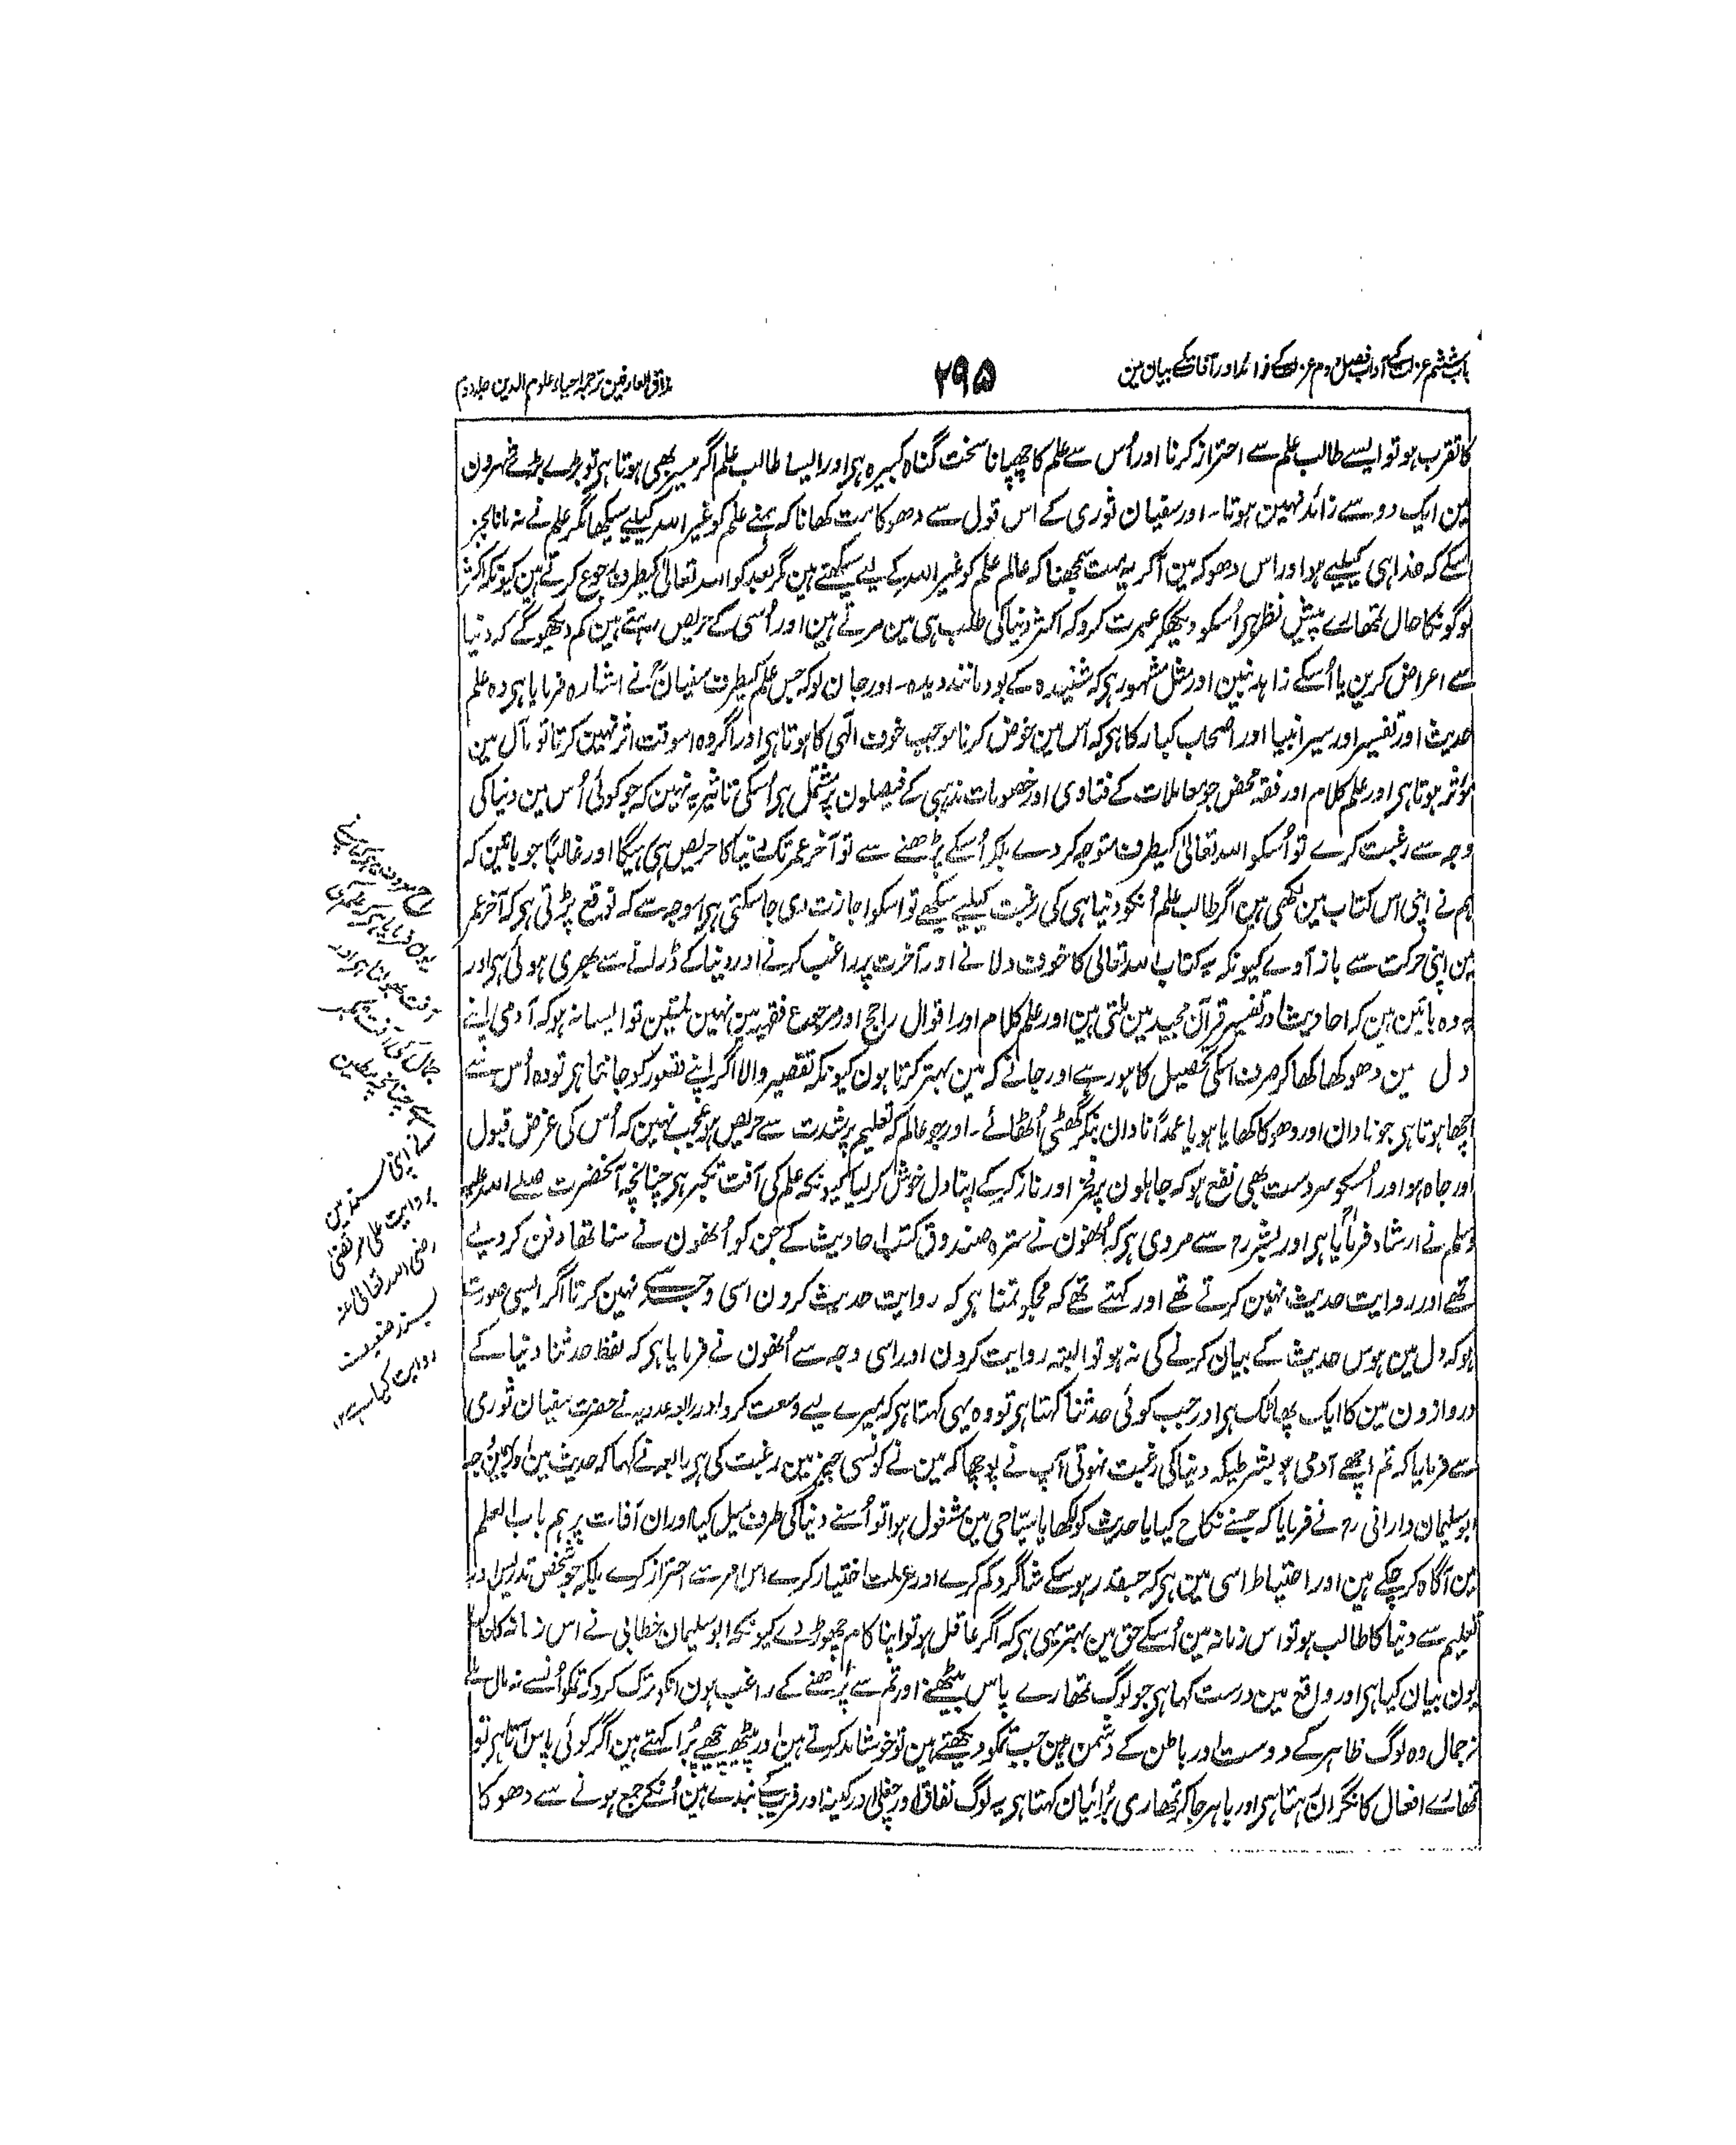 باب ششم عزلت کے آداب فصل دوم عزلت کے فوائد اور آفات کے بیان مین
۲۹۵
مذاق العارفین ترجمہ احیاء علوم الدین جلد دوم
کا تقرب ہو تو ایسے طالب علم سے احتراز کرنا اور اُس سے علم کا چھپانا سخت گناہ کبیرہ ہی اور ایسا طالب علم اگر میسر بھی ہوتا ہی تو بڑے بڑے شہرون
مین ایک دو سے زائد نہین ہوتا۔ اور سفیان ثوری کے اس قول سے دھوکا مت کھانا کہ ہمنے علم کو غیر اللہ کیلیے سیکھا مگر علم نے نہ مانا بجز
اسکے کہ خدا ہی کیلیے ہو اور اس دھوکہ مین آکر یہ مت سمجھنا کہ عالم علم کو غیر اللہ کے لیے سیکھتے ہین مگر بعد کو اللہ تعالیٰ کیطرف رجوع کرتے ہین کیونکہ اکثر
لوگونکا حال تمھارے پیش نظر ہی اُسکو دیکھکر عبرت کرو کہ اکثر دنیا کی طلب ہی مین مرتے ہین اور اُسی کے حریص رہتے ہین کم دیکھوگے کہ دنیا
سے اعراض کرین یا اُسکے زاہد بنین اور مثل مشہور ہی کہ شنیدہ کے بود مانند دیدہ۔ اور جان لو کہ جس علم کیطرف سفیان رح نے اشارہ فرمایا ہی وہ علم
حدیث اور تفسیر اور سیر انبیا اور اصحاب کبار کا ہی کہ اس مین خوض کرنا موجب خوف الٰہی کا ہوتا ہی اور اگر وہ اسوقت اثر نہین کرتا تو مآل مین
مؤثر ہوتا ہی اور علم کلام اور فقہ محض جو معاملات کے فتاوی اور خصومات مذہبی کے فیصلون پر مشتمل ہی اُسکی تاثیر یہ نہین کہ جو کوئی اُس مین دنیا کی
وجہ سے رغبت کرے تو اُسکو اللہ تعالیٰ کیطرف متوجہ کر دے بلکہ اُسکے پڑھنے سے تو آخر عمر تک دنیا کا حریص ہی رہیگا اور غالباً جو باتین کہ
ہم نے اپنی اس کتاب مین لکھی ہین اگر طالب علم اُنکو دنیا ہی کی رغبت کیلیے سیکھے تو اسکو اجازت دی جا سکتی ہی اسوجہ سے کہ توقع پڑتی ہی کہ آخر عمر
مین اپنی حرکت سے باز آوے کیونکہ یہ کتاب اللہ تعالیٰ کا خوف دلانے اور آخرت پر راغب کرنے اور دنیا کے ڈرانے سے بھری ہوئی ہی اور
یہ وہ باتین ہین کہ احادیث اور تفسیر قرآن مجید مین ملتی ہین اور علم کلام اور اقوال راجح اور مرجوح فقہیہ مین نہین ملتین تو ایسا نہ ہو کہ آدمی اپنے
دل مین دھوکھا کھا کر صرف اسکی تحصیل کا ہو رہے اور جانے کہ مین بہتر کرتا ہون کیونکہ تقصیر والا اگر اپنے قصور کو جانتا ہی تو وہ اُس سے
اچھا ہوتا ہی جو نادان اور دھوکا کھایا ہو یا عمداً نادان بنکر گھٹی اُٹھائے۔ اور جو عالم کہ تعلیم پر شدت سے حریص ہو عجب نہین کہ اُس کی غرض قبول
اور جاہ ہو اور اُسکو سردست بھی نفع ہو کہ جاہلون پر فخر اور ناز کرکے اپنا دل خوش کر لیا کیونکہ علم کی آفت تکبر ہی چنانچہ آنحضرت صلے اللہ علیہ
وسلم نے ارشاد فرمایا ہی اور بشر رح سے مروی ہی کہ اُنھون نے سترہ صندوق کتب احادیث کے جن کو اُنھون نے سنا تھا دفن کردیے
تھے اور روایت حدیث نہین کرتے تھے اور کہتے تھے کہ مجکو تمنا ہی کہ روایت حدیث کرون اسی وجہ سے نہین کرتا اگر ایسی صورت
ہو کہ دل مین ہوس حدیث کے بیان کرنے کی نہ ہو تو البتہ روایت کرون اور اسی وجہ سے اُنھون نے فرمایا ہی کہ لفظ حدثنا دنیا کے
دروازون مین کا ایک پھاٹک ہی اور جب کوئی حدثنا کہتا ہی تو وہ یہی کہتا ہی کہ میرے لیے وسعت کرو اور رابعہ عدویہ نے حضرت سفیان ثوری
سے فرمایا کہ تم اچھے آدمی ہو بشرطیکہ دنیا کی رغبت نہوتی آپ نے پوچھا کہ مین نے کونسی چیز مین رغبت کی ہی رابعہ نے کہا کہ حدیث مین اور
ابو سلیمان دارانی رح نے فرمایا کہ جسنے نکاح کیا یا حدیث کو لکھا یا سیاحی مین مشغول ہوا تو اُسنے دنیا کی طرف میل کیا اور ان آفات پر ہم باب العلم
مین آگاہ کر چکے ہین اور احتیاط اسی مین ہی کہ جسقدر ہوسکے شاگرد کم کرے اور عزلت اختیار کرے اس امر سے احتراز کرے بلکہ جو شخص تدریس اور
تعلیم سے دنیا کا طالب ہو تو اس زمانہ مین اُسکے حق مین بہتر یہی ہی کہ اگر عاقل ہو تو اپنا کام چھوڑ دے کیونکہ ابو سلیمان خطابی نے اس زمانہ کا حال
یون بیان کیا ہی اور واقع مین درست کہا ہی جو لوگ تمھارے پاس بیٹھنے اور تم سے پڑھنے کے راغب ہون انکو ترک کرو کہ تمکو اُنسے نہ مال ملے
نہ جمال وہ لوگ ظاہر کے دوست اور باطن کے دشمن ہین جب تمکو دیکھتے ہین تو خوشامد کرتے ہین اور پیٹھ پیچھے بُرا کہتے ہین اگر کوئی پاس آتا ہی تو
تمھارے افعال کا نگران رہتا ہی اور باہر جا کر تمھاری بُرائیان کہتا ہی یہ لوگ نفاق اور چغلی اور کینہ اور فریب کے بندے ہین اُنکے جمع ہونے سے دھوکا
بروایت علی مرتضی
رضی اللہ تعالیٰ عنہ
بسند ضعیف
روایت کیا ہے ۱۲